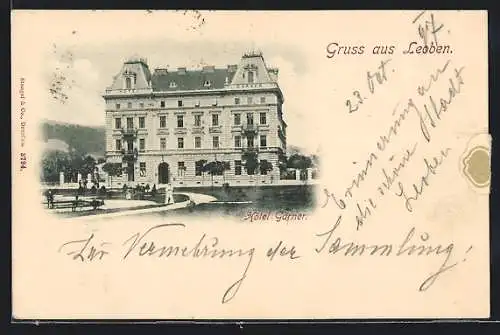 Gruss aus Leoben.
23. Okt. 97
Erinnerung an
die schöne Stadt
Leoben
Stengel & Co., Dresden. 5794.
GARNER
Hotel Gärner.
Zur Vermehrung der Sammlung!